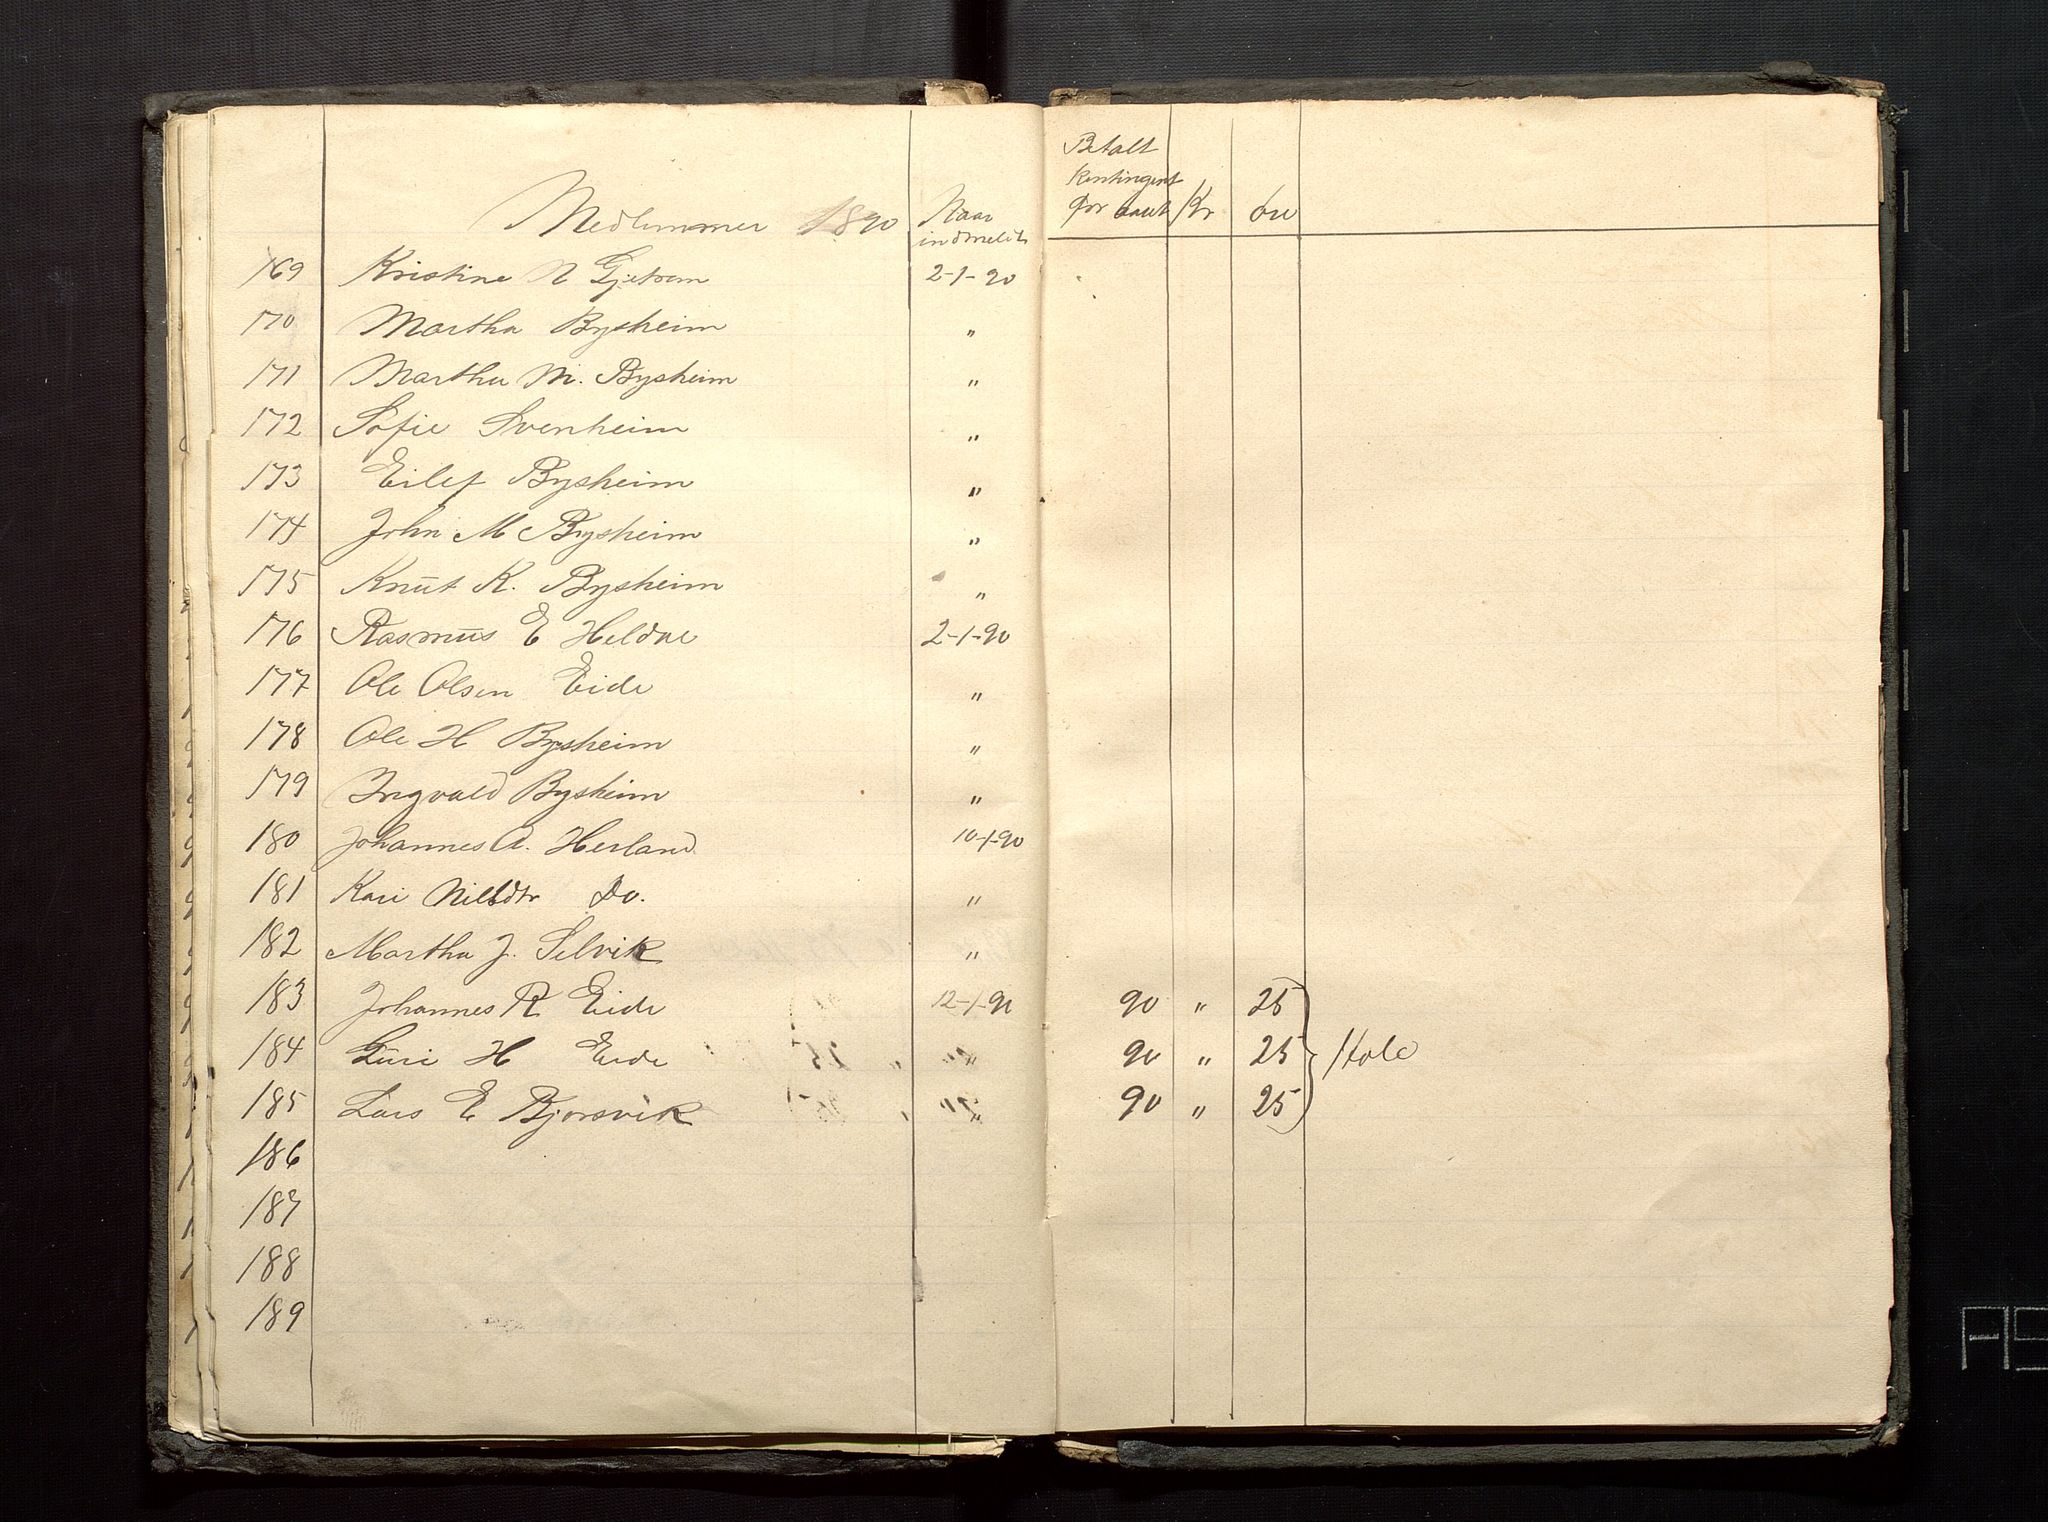 Medlemmer 1890 Naar indmeldt Betalt Kontingent for aaret Kr Øre
169 Kristine N Gjetram 2-1-90
170 Martha Bysheim "
171 Martha M. Bysheim "
172 Sofie Svenheim "
173 Eilef Bysheim "
174 John M Bysheim "
175 Knut K. Bysheim "
176 Rasmus E Heldal 2-1-90
177 Ole Olsen Eide "
178 Ole H Bysheim "
179 Ingvald Bysheim "
180 Johannes A. Herland 10-1-90
181 Kari Nilsdtr Do. "
182 Martha J. Selvik "
183 Johannes R Eide 12-1-90 90 " 25
184 Guri H Eide " 90 " 25 Hole
185 Lars E Bjorsvik " 90 " 25
186
187
188
189